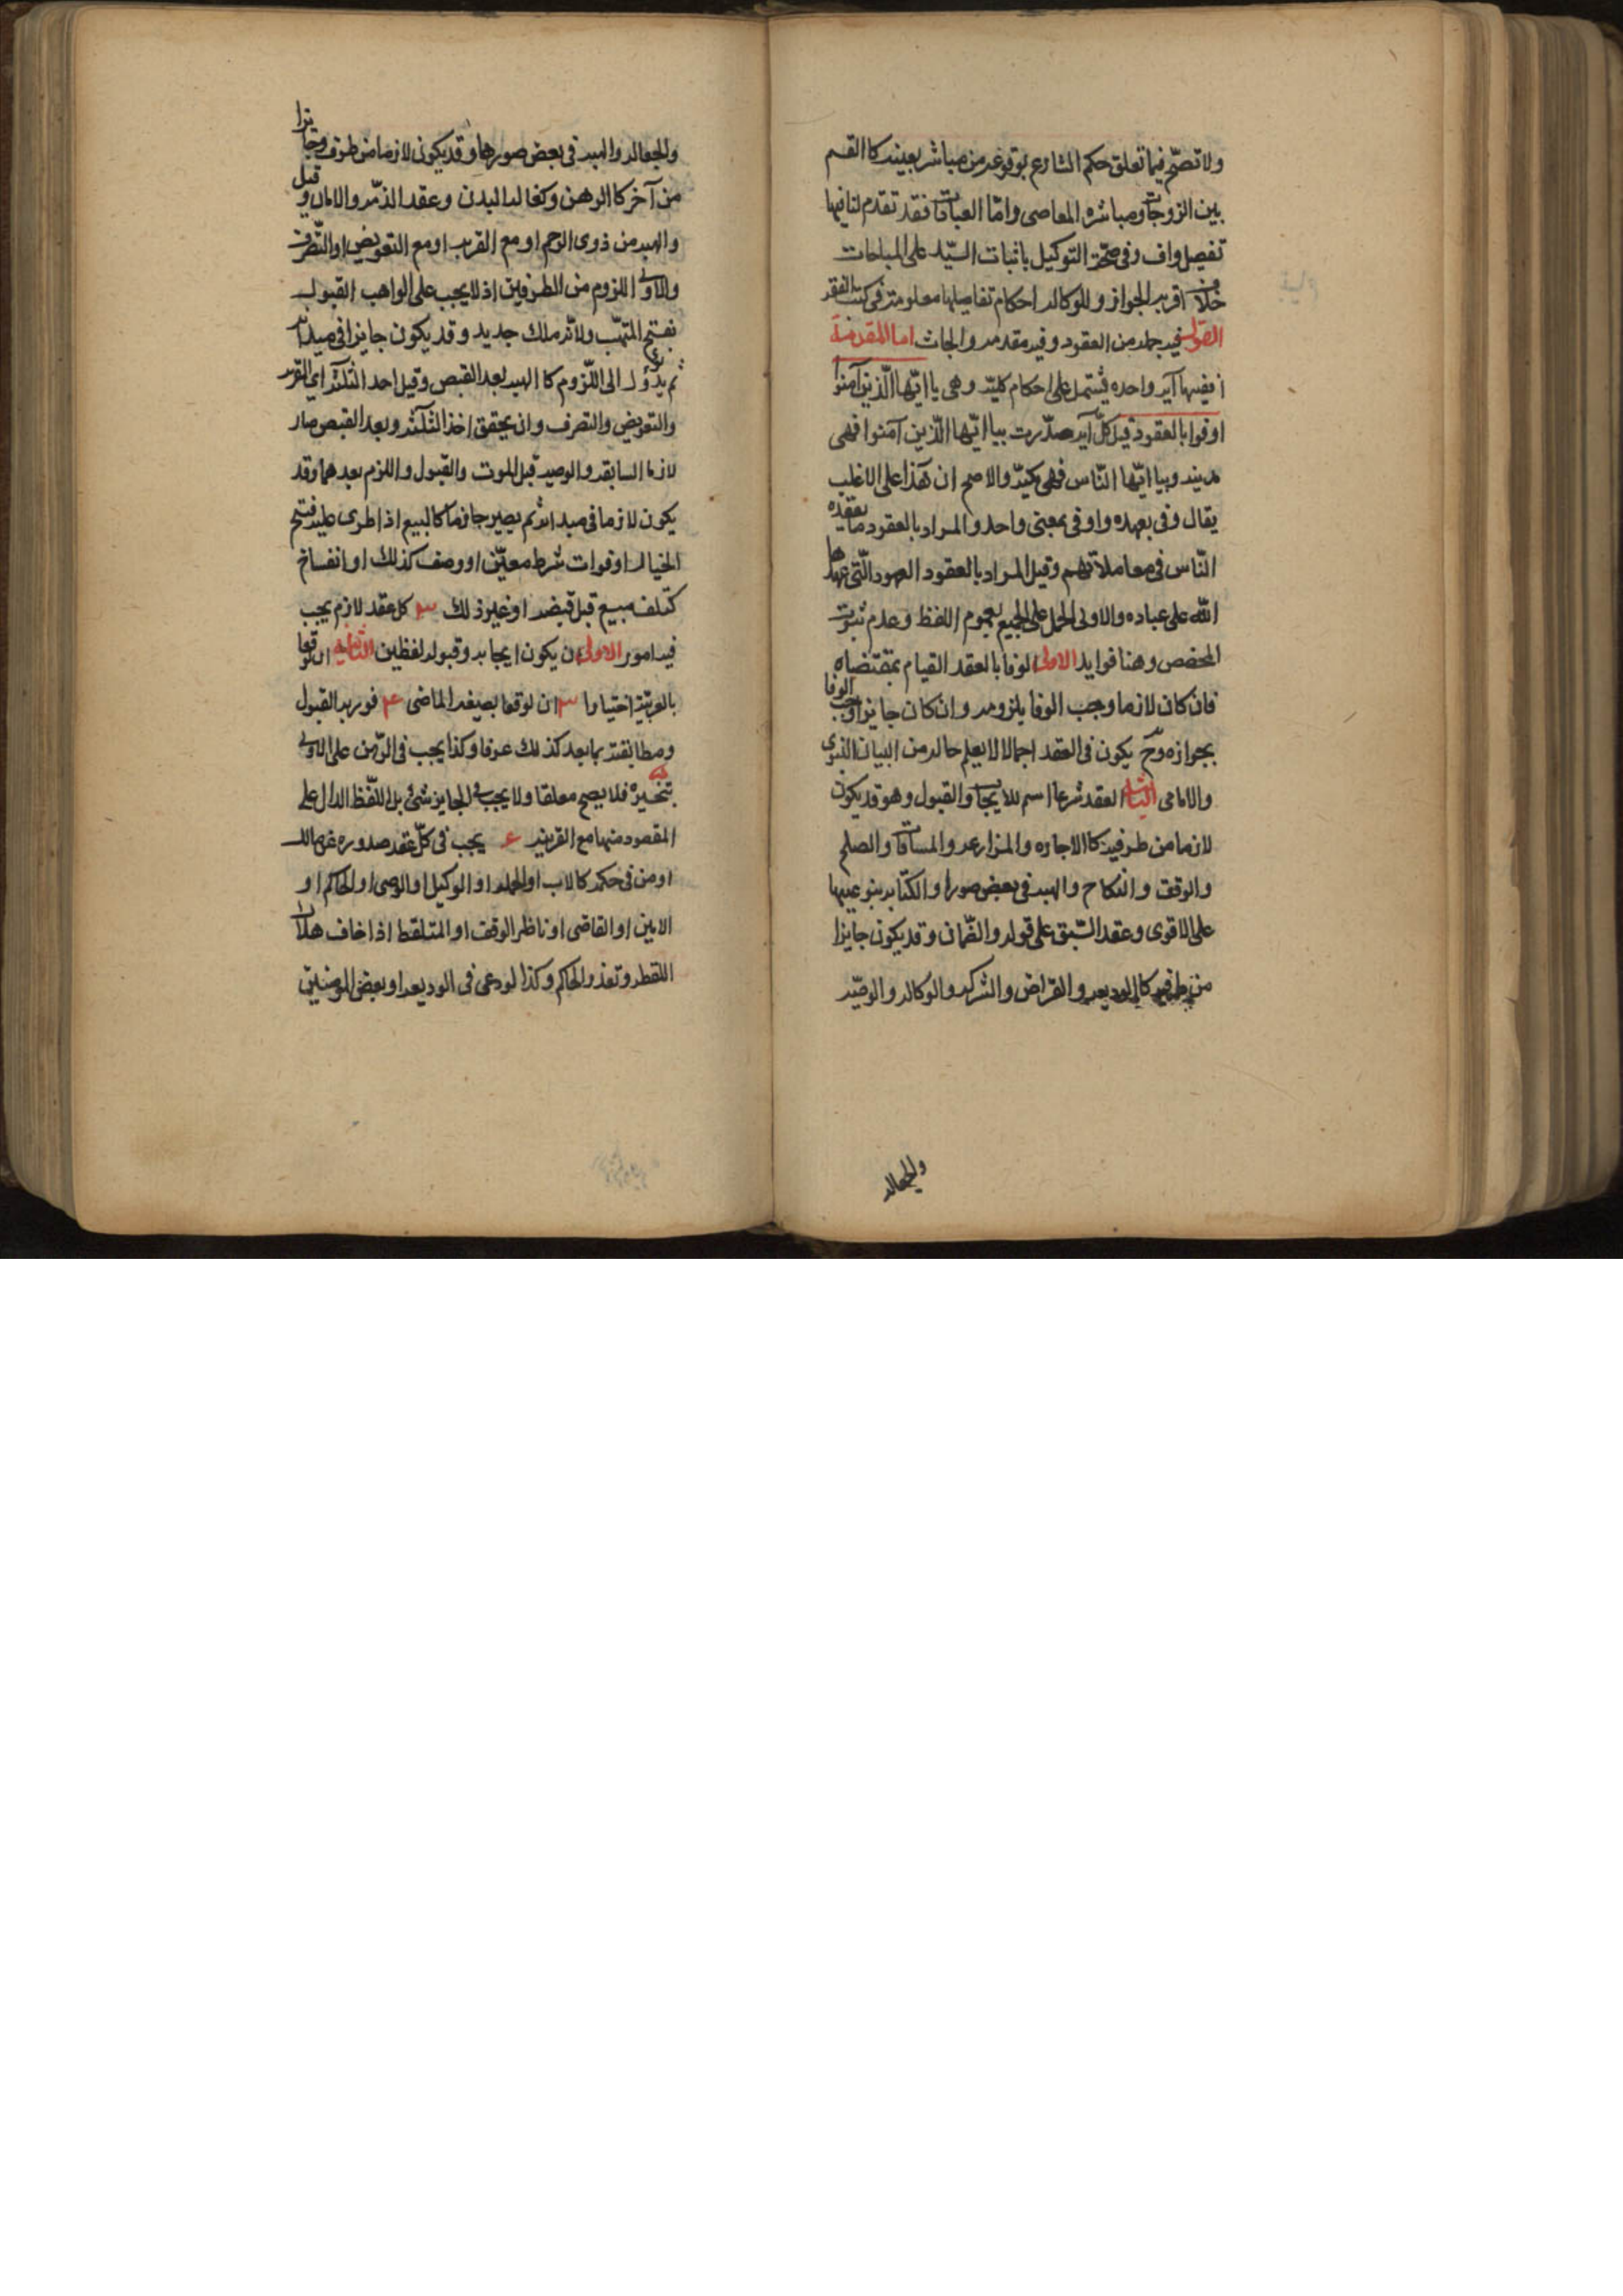 ولا تصحّ فيما تعلق حكم الشارع بوقوعه من مباشر بعينه كالقسم
بين الزوجات ومباشره المعاصى وامّا العبادات فقد تقدم لنا فيها
تفصيل واف وفى صحّة التوكيل باثبات اليد على المباحات
خلاف اقربه الجواز وللوكاله احكام تفاصيلها معلومة فى كتب الفقه
فيه جمله من العقود وفيه مقدمه وابحاث اما المقدمة
ففيها آيه واحده تشتمل على احكام كليّه وهى يا ايّها الّذين آمنوا
اوفوا بالعقود قيل كلّ آيه صدّرت بيا ايّها الّذين آمنوا فهى
مدنيه وبيا ايّها النّاس فهى مكيّه والاصح ان هذا على الاغلب
يقال وفى بعهده واوفى بمعنى واحد والمراد بالعقود ما يعقده
النّاس فى معاملاتهم وقيل المراد بالعقود العهود الّتى عهدها
اللّه على عباده والاولى الحمل على الجميع لعموم اللفظ وعدم ثبوت
المخصص وهنا فوايد الاولى الوفا بالعقد القيام بمقتضاه
فان كان لازما وجب الوفا بلزومه وان كان جايزا وجب الوفا
بجوازه وح يكون فى العقد اجمالا لا يعلم حاله من البيان النبوى
والامامى الثانيه العقد شرعا اسم للايجاب والقبول وهو قد يكون
لازما من طرفيه كالاجاره والمزارعه والمساقات والصلح
والوقف والنكاح والهبه فى بعض صورها والكتابه بنوعيها
على الاقوى وعقد السّبق على قول والضّمان وقد يكون جايزا
من طرفيه كالوديعه والقراض والشركه والوكاله والوصيّه
والجعاله
والجعاله والهبه فى بعض صورها وقد يكون لازما من طرف وجايزا
من آخر كالرهن وكفاله البدن وعقد الذمّه والامان وقيل
والهبه من ذوى الرحم او مع القربه او مع التعويض او التّصرف
والاولى اللزوم من الطرفين اذ لا يجب على الواهب القبول
بفسخ المتهّب ولانّه ملك جديد وقد يكون جايزا فى مبدائه
ثم يؤل الى اللّزوم كالهبه بعد القبض وقيل احد الثلثه اى القربه
والتعويض والتصرف وان يحقق اخذ الثلثه وبعد القبض صار
لازما السابقه والوصيه قبل الموت والقبول واللزم بعدهما وقد
يكون لازما فى مبدائه ثم يصير جايزا كالبيع اذا طرى عليه فسخ
الخيار او فوات شرط معيّن او وصف كذلك او انفساخ
كتلف مبيع قبل قبضه او غير ذلك ٣ كل عقد لازم يجب
فيه امور الاولى ان يكون ايجابه وقبوله لفظين الثانيه ان يوقعا
بالعربيّة اختيارا ٣ ان يوقعا بصيغه الماضى ۴ فوريه القبول
ومطابقته بما يعد كذلك عرفا وكذا يجب فى الرّهن على الاولى
تنجيزه فلا يصح معلقا ولا يجب فى الجايز شئ بل اللّفظ الدال على
المقصود منها مع القرينه ع يجب فى كلّ عقد صدوره عن مالك
او من فى حكمه كالاب او الجد او الوكيل او الوصى او الحاكم او
الامين او القاضى او ناظر الوقف او الملتقط اذا خاف هلاك
اللقطه وتعذر الحاكم وكذا لودعى فى الوديعه او بعض المومنين